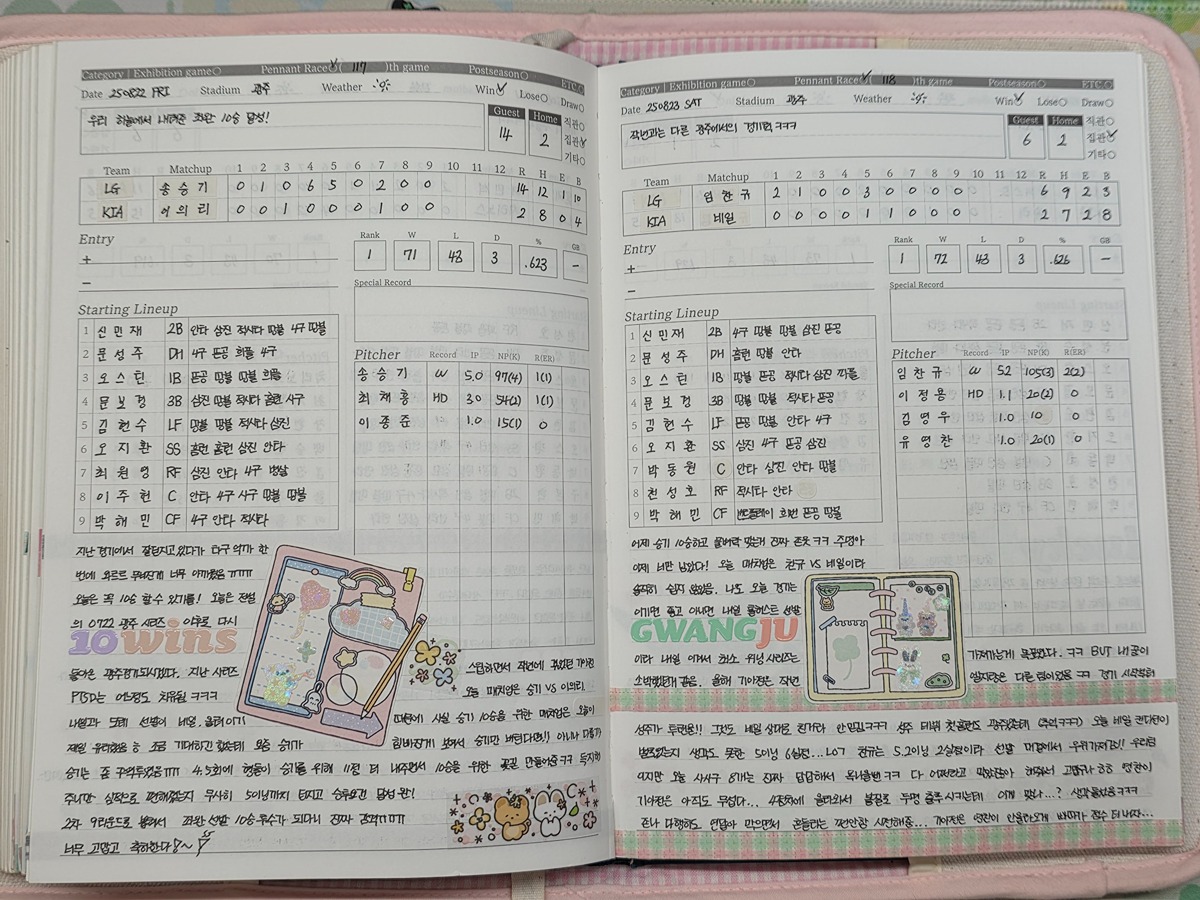 Category | Exhibition game○ Pennant Race○( 117 )th game Postseason○ ETC○
Date 250822 FRI Stadium 광주 Weather Win○ Lose○ Draw○
우리 하늘에서 내려준 좌완 10승 달성!
Guest Home
14 2
직관○
집관○
기타○
Team Matchup 1 2 3 4 5 6 7 8 9 10 11 12 R H E B
LG 송승기 0 1 0 6 5 0 2 0 0 14 12 1 10
KIA 이의리 0 0 1 0 0 0 1 0 0 2 8 0 4
Entry
+
−
Rank W L D % GB
1 71 43 3 .623 -
Special Record
Starting Lineup
1 신민재 2B 안타 삼진 적시타 땅볼 4구 땅볼
2 문성주 DH 4구 뜬공 희플 4구
3 오스틴 1B 뜬공 땅볼 땅볼 희플
4 문보경 3B 삼진 땅볼 적시타 홈런 사구
5 김현수 LF 땅볼 땅볼 적시타 삼진
6 오지환 SS 홈런 홈런 삼진 안타
7 최원영 RF 삼진 안타 4구 병살
8 이주헌 C 안타 4구 사구 땅볼 땅볼
9 박해민 CF 4구 안타 적시타
Pitcher Record IP NP(K) R(ER)
송승기 W 5.0 97(4) 1(1)
최채흥 HD 3.0 54(2) 1(1)
이종준 1.0 15(1) 0
지난 경기에서 잘 던지고 있다가 타구 맞아 한
번에 와르르 무너진게 너무 아까웠음 ㅠㅠㅠ
오늘은 꼭 10승 할 수 있기를! 오늘은 전설
의 0722 광주 시리즈 이후로 다시
10 wins
돌아온 광주경기되시겠다. 지난 시리즈
PTSD는 어느정도 치유됨 ㅋㅋㅋ
스윕하면서 작년에 귀했던 기아전
오늘 매치업은 승기 VS 이의리.
제일 유력했음 후 조금 기대하긴 했는데 요즘 승기가
승기는 좀 구역투였음ㅠㅠ 4,5회에 형들이 승기를 위해 11점 더 내주면서 10승을 위한 꽃길 만들어줌ㅋㅋ 득지원
주니까 심적으로 편해졌는지 무사히 5이닝까지 던지고 승투요건 달성 완!
2차 9라운드로 뽑혀서 좌완 선발 10승투수가 되다니 진짜 감격ㅠㅠㅠ
너무 고맙고 축하한다~
Category | Exhibition game○ Pennant Race○( 118 )th game Postseason○ ETC○
Date 250823 SAT Stadium 광주 Weather Win○ Lose○ Draw○
작년과는 다른 광주에서의 경기력 ㅋㅋㅋ
Guest Home
6 2
직관○
집관○
기타○
Team Matchup 1 2 3 4 5 6 7 8 9 10 11 12 R H E B
LG 임찬규 2 1 0 0 3 0 0 0 0 6 9 2 3
KIA 네일 0 0 0 0 1 1 0 0 0 2 7 2 8
Entry
+
−
Rank W L D % GB
1 72 43 3 .626 -
Special Record
Starting Lineup
1 신민재 2B 4구 땅볼 땅볼 삼진 뜬공
2 문성주 DH 홈런 땅볼 안타
3 오스틴 1B 땅볼 뜬공 적시타 삼진 파플
4 문보경 3B 땅볼 땅볼 적시타 뜬공
5 김현수 LF 뜬공 땅볼 안타 4구
6 오지환 SS 삼진 4구 뜬공 삼진
7 박동원 C 안타 삼진 안타 땅볼
8 천성호 RF 적시타 안타
9 박해민 CF 번트플레이 희번 뜬공 땅볼
Pitcher Record IP NP(K) R(ER)
임찬규 W 5.2 105(3) 2(2)
이정용 HD 1.1 20(2) 0
김영우 1.0 10 0
유영찬 1.0 20(1) 0
어제 승기 10승하고 물벼락 맞는거 진짜 존웃 ㅋㅋ 주영아
이제 너만 남았다! 오늘 매치업은 찬규 VS 네일이라
솔직히 쉽지 않았음. 나도 오늘 경기는
이기면 좋고 아니면 내일 톨허스트 선발
GWANGJU
이라 내일 이겨서 최소 위닝시리즈는
가져가는게 목표였다. ㅋㅋ BUT 내 꿈이
소박했던거 같음. 올해 기아전은 작년
엘지랑은 다른 팀이었음 ㅋㅋ 경기 시작부터
성주가 투런홈런!! 그것도 네일 상대로 친거라 안믿김ㅋㅋ 성주 데뷔 첫홈런도 광주였는데 (추억ㅋㅋ) 오늘 네일 컨디션이
별로였는지 생각도 못한 5이닝 6실점... LO7 찬규는 5.2이닝 2실점이라 선발 대결에서 우위가져감!! 우리팀
9지만 오늘 사사구 8개는 진짜 답답해서
기아전은 아직도 무섭다... 4점차에 올라와서 볼질로 두명 출루시키는데 이게 맞나...? 생각들었음ㅋㅋㅋ